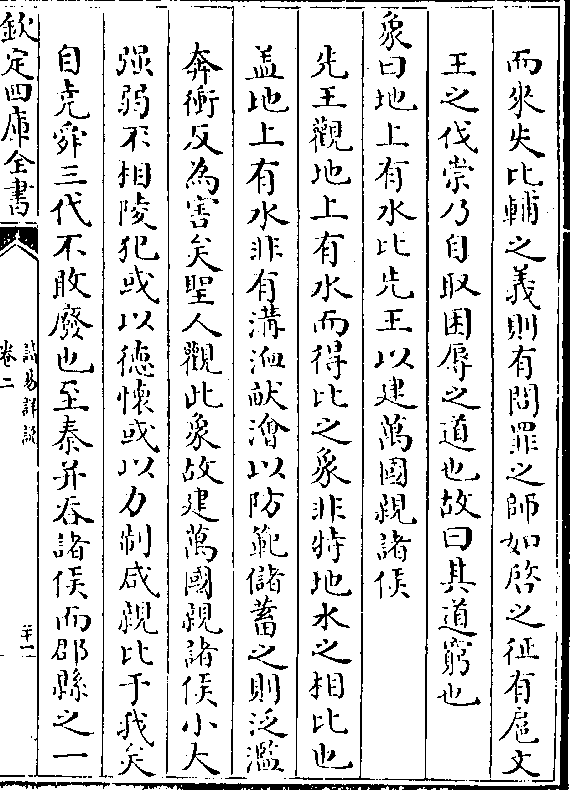 而來失比輔之義則有問罪之師如啓之征有扈文
王之伐崇乃自取困辱之道也故曰其道窮也
象曰地上有水比先王以建萬國親諸侯
先王觀地上有水而得比之象非特地水之相比也
盖地上有水非有溝洫畎澮以防範儲蓄之則泛濫
奔衝反為害矣聖人觀此象故建萬國親諸侯小大
强弱不相陵犯或以德懷或以力制咸親比于我矣
自堯舜三代不敢廢也至秦并吞諸侯而郡縣之一
欽定四庫全書
讀易詳說
卷二
二十一